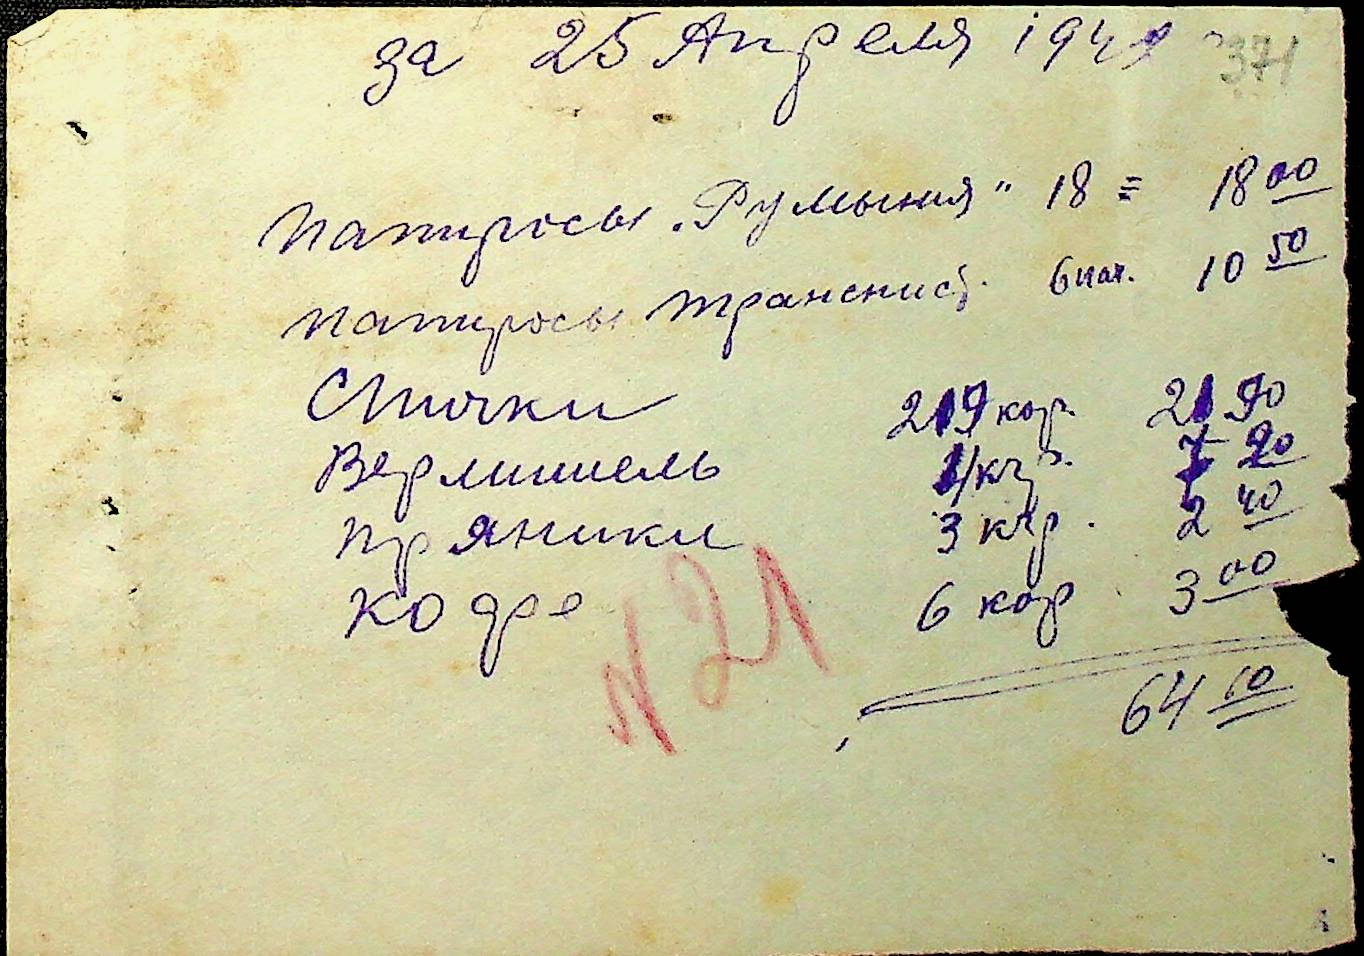 за 25 Апреля 1949
371
папиросы „Румыния" 18 = 18 00
папиросы транснист. 6 пач. 10 50
Спички 219 кор. 21 90
Вермишель 1 кгр. 7 20
пряники 3 кгр. 2 40
кофе 6 кор 3 00
N 21
64 10